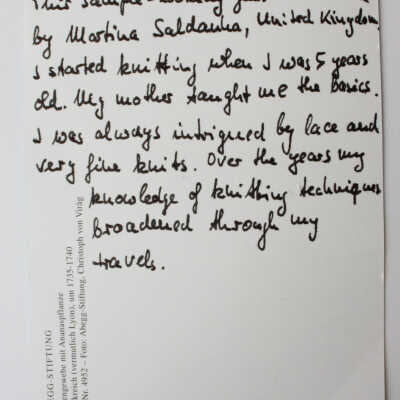 This sample
by Martina Saldanha, United Kingdom.
I started knitting when I was 5 years
old. My mother taught me the basics.
I was always intrigued by lace and
very fine knits. Over the years my
knowledge of knitting techniques
broadened through my
travels.
EGG-STIFTUNG
engewebe mit Ananaspflanze
kreich (vermutlich Lyon), um 1735-1740
Nr. 4952 – Foto: Abegg-Stiftung, Christoph von Viràg